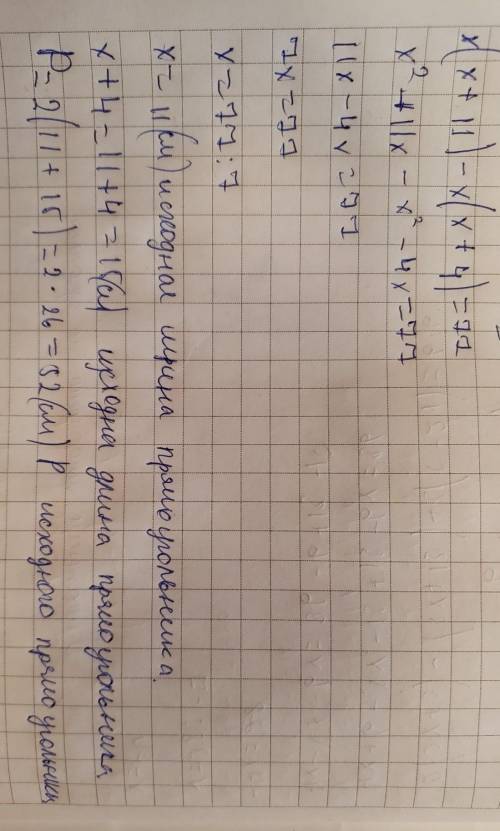 x(x+11)-x(x+4)=77
x²+11x-x²-4x=77
11x-4x=77
7x=77
x=77:7
x=11(см) исходная ширина прямоугольника.
x+4=11+4=15(см) исходна длина прямоугольника
P=2(11+15)=2·26=52(см) P исходного прямоугольника